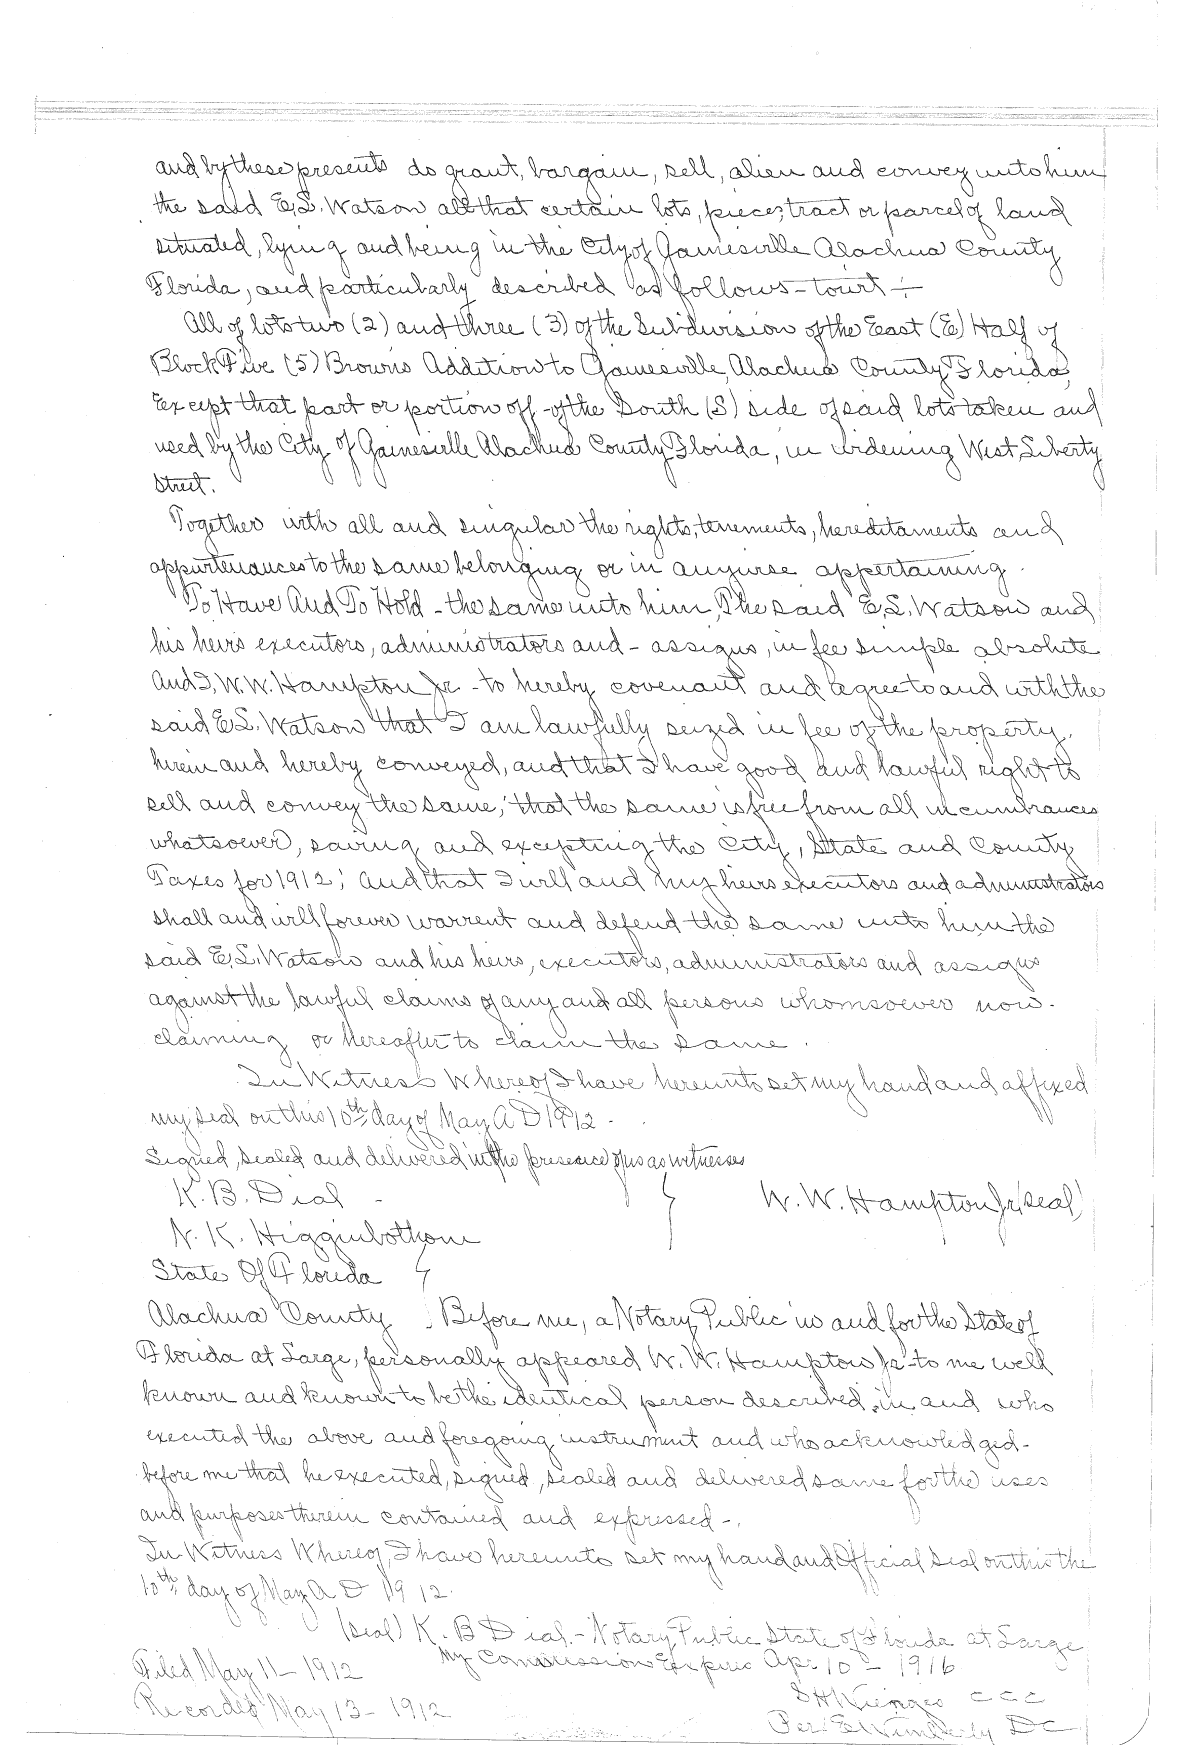 and by these presents do grant, bargain, sell, alien and convey unto him
the said E. S. Watson all that certain lots, piece, tract or parcel of land
situated, lying and being in the City of Gainesville Alachua County
Florida, and particularly described as follows - towit -
All of lots two (2) and three (3) of the Subdivision of the East (E) Half of
Block Five (5) Browns Addition to Gainesville, Alachua County Florida,
Except that part or portion off - of the South (S) side of said lots taken and
used by the City of Gainesville Alachua County Florida, in widening West Liberty
Street.
Together with all and singular the rights, tenements, hereditaments and
appurtenances to the same belonging or in anywise appertaining.
To Have And To Hold - the same unto him, The said E. S. Watson and
his heirs executors, administrators and - assigns, in fee simple absolute
And I, W. W. Hampton Jr - to hereby covenant and agree to and with the
said E. S. Watson that I am lawfully seized in fee of the property,
herein and hereby conveyed, and that I have good and lawful right to
sell and convey the same; that the same is free from all incumbrances
whatsoever, saving and excepting the City, State and County
Taxes for 1912; And that I will and my heirs executors and administrators
shall and will forever warrent and defend the same unto him the
said E. S. Watson and his heirs, executors, administrators and assigns
against the lawful claims of any and all persons whomsoever now -
claiming or hereafter to claim the same.
In Witness Whereof I have hereunto set my hand and affixed
my seal on this 10th day of May A D 1912 -
Signed, sealed and delivered in the presence of us as witnesses
K. B. Dial -
W. W. Hampton Jr (seal)
N. K. Higginbothom
State Of Florida
Alachua County : Before me, a Notary Public in and for the State of
Florida at Large, personally appeared W. W. Hampton Jr - to me well
known and known to be the identical person described in and who
executed the above and foregoing instrument and who acknowledged -
before me that he executed, signed, sealed and delivered same for the uses
and purposes therein contained and expressed -.
In Witness Whereof, I have hereunto set my hand and Official seal on this the
10th day of May A D 1912.
(seal) K. B Dial. - Notary Public State of Florida at Large
My Commission Expires Apr 10 - 1916
Filed May 11 - 1912
Recorded May 13 - 1912
S H Wienges C C C
Per E Wimberly D C